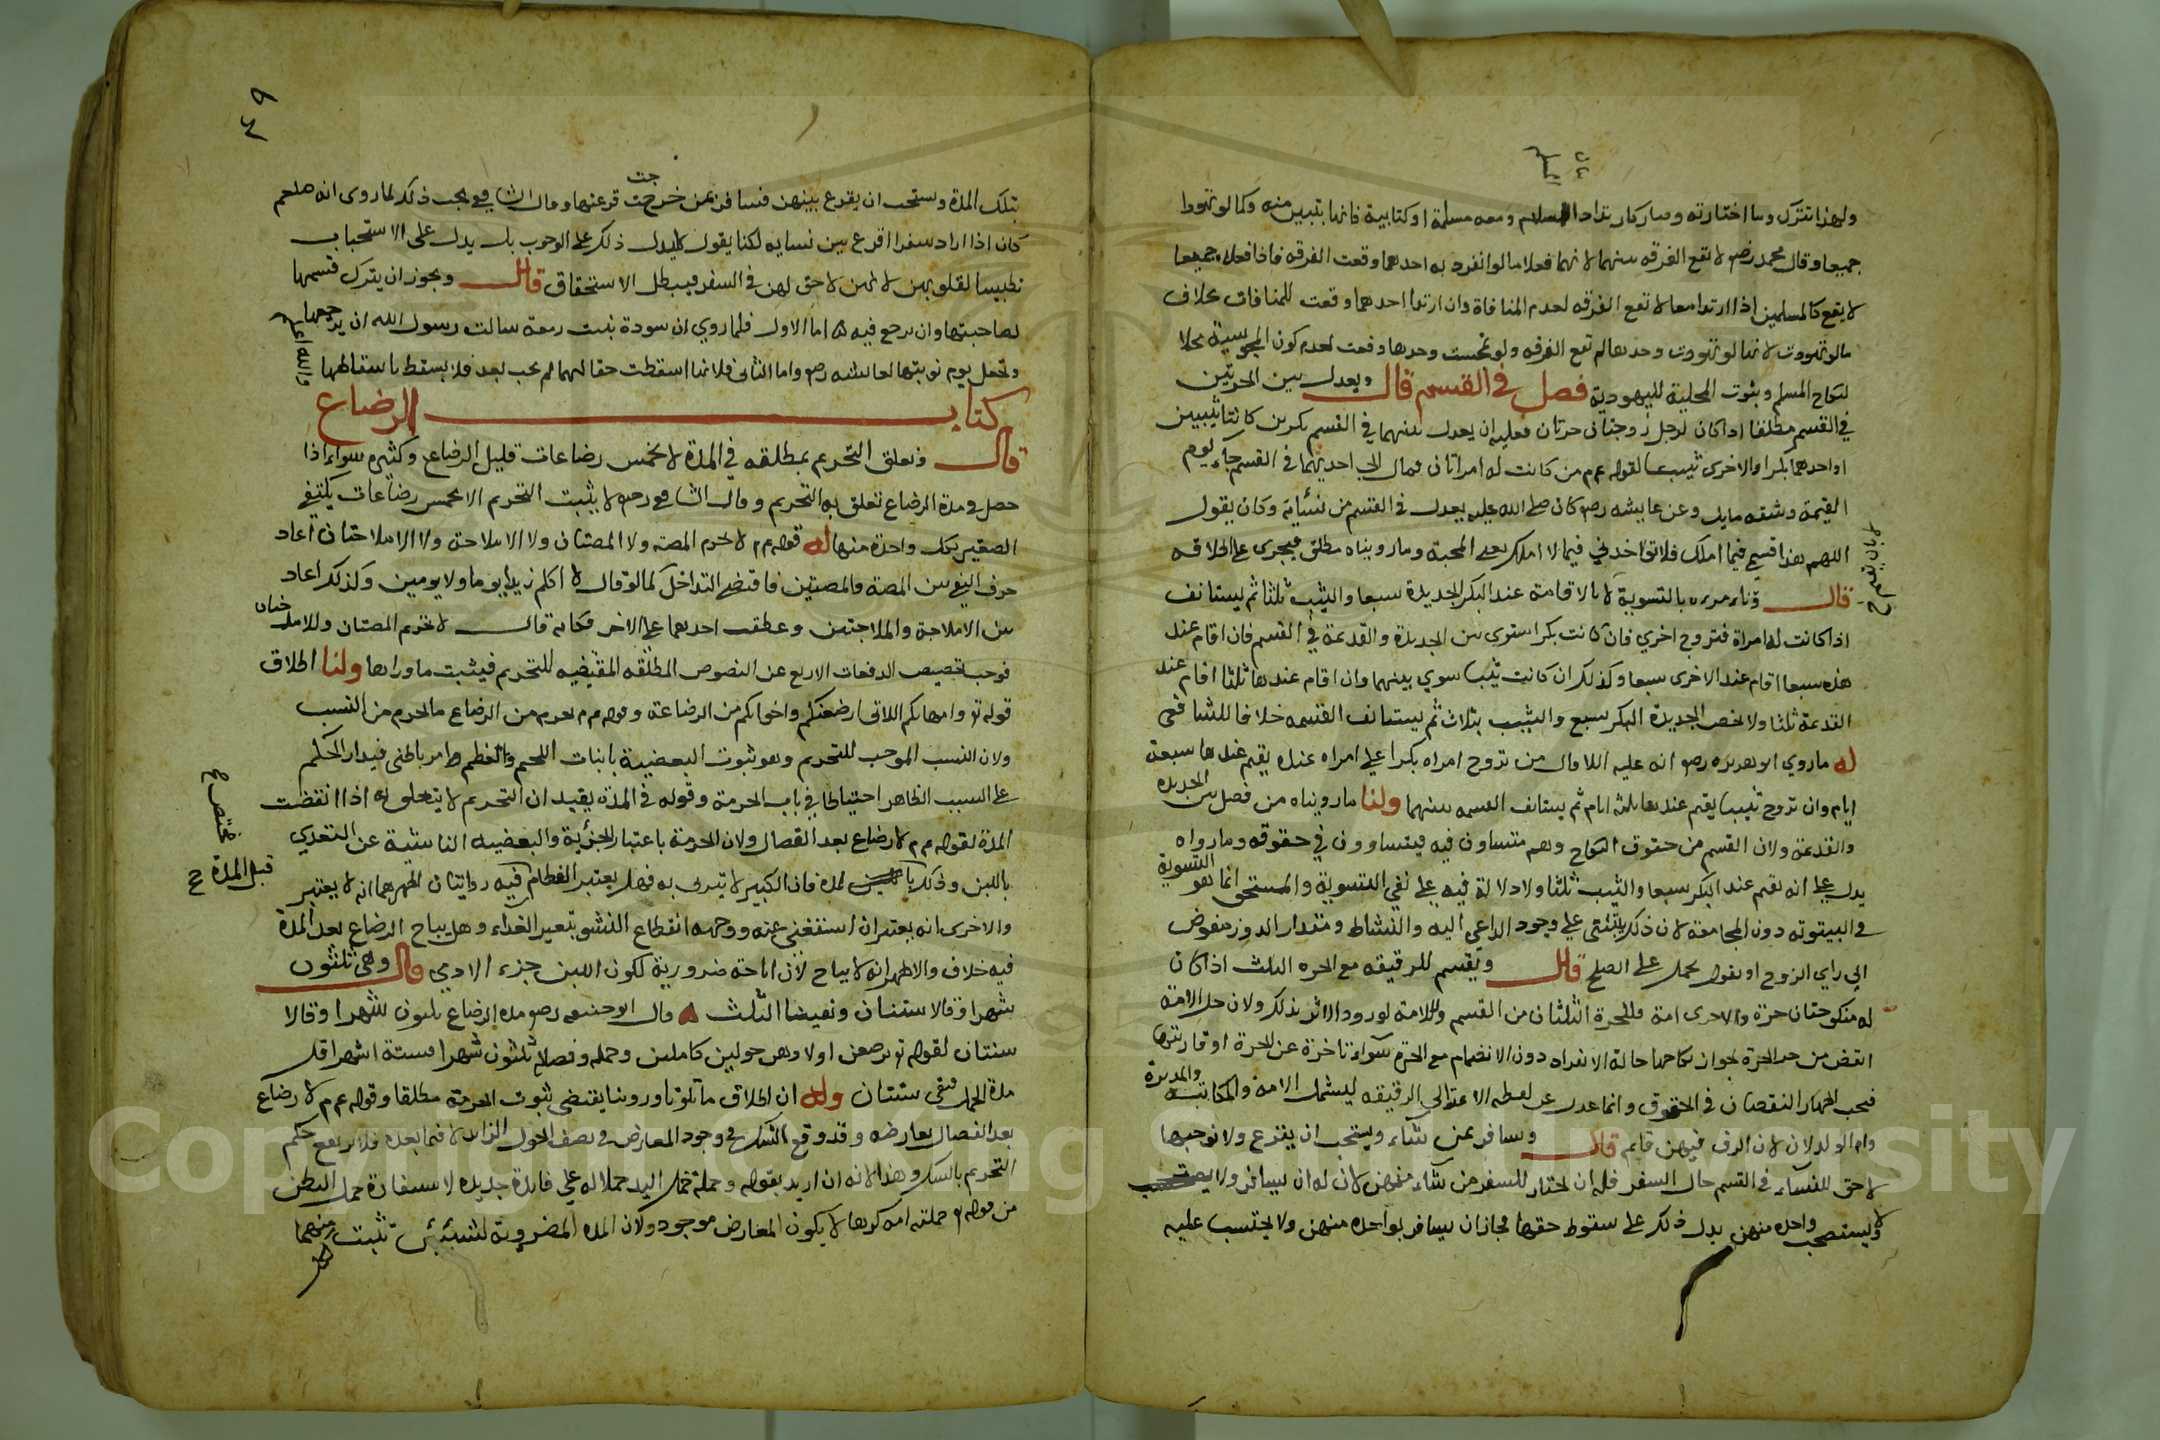 ولهذا تترك وما اختارته وصار كارتداد المسلم ومعه مسلمة او كتابية فانها تبين منه وكما لو تهودا
جميعا وقال محمد رضه لا تقع الفرقه بينهما لانهما فعلا ما لو انفرد به احدهما وقعت الفرقه فاذا فعلاه جميعا
لا يقع كالمسلمين اذا ارتدا معا لا تقع الفرقه لعدم المنافاة وان ارتدا احدهما وقعت للمنافات بخلاف
مالو تهودت لانها لو تهودت وحدها لم تقع الفرقه ولو تمجست وحدها وقعت لعدم كون المجوسية محلا
لنكاح المسلم وثبوت المحلية لليهودية فصل في القسم قال ويعدل بين الحرتين
في القسم مطلقا اذا كان لرجل زوجتان حرتان فعليه ان يعدل بينهما في القسم بكرين كانتا ثيبين
او احدهما بكرا والاخرى ثيبا لقوله عم من كانت له امراتان فمال الى احديهما في القسم جاء يوم
القيمة وشقه مايل وعن عايشه رضه كان صلى الله عليه يعدل في القسم من نسائه وكان يقول
اللهم هذا قسمي فيما املك فلا تؤاخذني فيما لا املك يعني المحبة وما رويناه مطلق فيجرى على اطلاقه
قال بالتسوية لا بالاقامة عند البكر الجديدة سبعا والثيب ثلثا ثم ليستانف
اذا كانت له امراة فتزوج اخرى فان كانت بكرا سوى بين الجديدة والقديمة في القسم فان اقام عند
هذه سبعا اقام عند الاخرى سبعا وكذلك ان كانت ثيبا سوي بينهما وان اقام عندها ثلثا اقام عند
القديمة ثلثا ولا يخص الجديدة البكر بسبع والثيب بثلاث ثم يستانف القسمه خلافا للشافعى
له ما روي ابو هريره رضه انه عليه اللا وال من تزوج امراه بكرا على امراه عنده يقيم عندها سبعة
ايام وان تزوج ثيبا يقيم عندها ثلثة ايام ثم يستانف القسمه بينهما ولنا ما رويناه من فصل بين الجديده
والقديمة ولان القسم من حقوق النكاح وهم متساون فيه فيتساوون في حقوقه وما رواه
يدل على انه يقيم عند البكر سبعا والثيب ثلثا ولا دلالة فيه على نفي التسوية والمستحق انما هو التسوية
في البيتوته دون المجامعة لان ذلك يبتنى على وجود الداعى اليه والنشاط ومقدار الدور مفوض
الى راي الزوج او نقول يحمل على الصلح قال ويقسم للرقيقه مع الحره الثلث اذا كان
له منكوحتان حرة والاخرى امة فللحرة الثلثان من القسم وللامة لورود الاثر بذلك ولان حل الامة
انقص من حل الحرة لجواز نكاحها حالة الانفراد دون الانضمام مع الحرة سواء تاخرة عن الحرة او قارنتها
فيجب اظهار النقصان في الحقوق وانما عدل عن لفظه الامة الى الرقيقه ليشمل الامة والمكاتبه والمدبرة
وام الولد لان الرق فيهن قايم قال ويسافر بمن شاء ويستحب ان يقرع ولا نوجبها
لا حق للنساء في القسم حال السفر فله ان يختار للسفر من شاء منهن لان له ان يسافر ولا يستصحب
ولا يستصحب واحده منهن يدل ذلك على سقوط حقها فجاز ان يسافر بواحده منهن ولا يحتسب عليه
تلك المدة ويستحب ان يقرع بينهن فيسافر بمن خرجت قرعتها وقال الشافعي يجب ذلك لما روى انه صلعم
كان اذا اراد سفرا اقرع بين نسايه لكنا نقول لا يدل ذلك على الوجوب بل يدل على الاستحباب
تطييبا لقلوبهن لانهن لا حق لهن في السفر فيبطل الاستحقاق قال ويجوز ان يترك قسمها
لصاحبتها وان ترجع فيه اما الاول فلما روي ان سودة بنت زمعة سالت رسول الله ان يرجعها
وتجعل يوم نوبتها لعايشه رضه واما الثاني فلانها اسقطت حقا لها لم يجب بعد فلا يسقط باسقاطها
والله اعلم
كتاب الرضاع
قال وتعلق التحريم بمطلقه في المدة لا بخمس رضاعات قليل الرضاع وكثيره سواء اذا
حصل في مدة الرضاع تعلق به التحريم وقال الشافعي رحه لا يثبت التحريم الا بخمس رضاعات يكتفي
الصغير بكل واحدة منها له قوله عم لا تحرم المصة ولا المصتان ولا الاملاجة ولا الاملاجتان اعاد
حرف النفي بين المصة والمصتين فاقتضى التداخل كما لو قال لا اكلم زيدا يوما ولا يومين وكذلك اعاد
بين الاملاجة والاملاجتين وعطف احدهما على الاخر فكانه قال لا تحرم المصتان والاملاجتان
فوجب تخصيص الدفعات الاربع عن النصوص المطلقه المقتضيه للتحريم فيثبت ما وراها ولنا اطلاق
قوله تع وامهاتكم اللاتى ارضعنكم واخواتكم من الرضاعة وقوله عم يحرم من الرضاع ما يحرم من النسب
ولان السبب الموجب للتحريم وهو ثبوت البعضية بانبات اللحم والعظم امر باطنى فيدار الحكم
على السبب الظاهر احتياطا في باب الحرمة وقوله في المدة يفيد ان التحريم لا يتعلق به اذا انقضت
المدة لقوله عم لا رضاع بعد الفصال ولان الحرمة باعتبار الجزئية والبعضيه الناشية عن التغدى
باللبن وذلك المدة فان الكبير لا يتربى به وهل يعتبر الفطام فيه روايتان اظهرهما انه لا يعتبر قبل المدة
والاخرى انه يعتبر ان استغنى عنه ووجهه انقطاع النشو بتغير الغداء وهل يباح الرضاع بعد المدة
فيه خلاف والاظهر انه لا يباح لان اباحته ضرورية لكون اللبن جزء الادمي قال وهى ثلثون
شهرا وقالا سنتان ونفيضا الثلث قال ابو حنيفه رضه مدة الرضاع ثلثون شهرا وقالا
سنتان لقوله تع يرضعن اولادهن حولين كاملين وحمله وفصاله ثلثون شهرا وستة اشهر اقل
مدة الحمل فبقى سنتان وله ان اطلاق ما تلونا وروينا يقتضى ثبوت الحرمة مطلقا وقوله عم لا رضاع
بعد الفصال يعارضه وقد وقع الشك في وجود المعارض في نصف الحول الزائد لا فيما بعده فلا يرتفع حكم
التحريم بالشك وهذا لانه ان اريد بقوله وحمله حمل اليد حملا له على فايدة جديده لاستفادة حمل البطن
من قوله تع حملته امه كرها لا يكون المعارض موجود ولان المده المضروبة لشيئين تثبت منهما